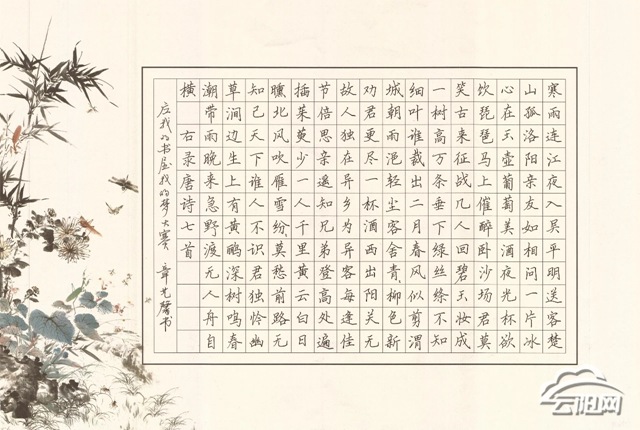 寒雨连江夜入吴平明送客楚
山孤洛阳亲友如相问一片冰
心在玉壶葡萄美酒夜光杯欲
饮琵琶马上催醉卧沙场君莫
笑古来征战几人回碧玉妆成
一树高万条垂下绿丝绦不知
细叶谁裁出二月春风似剪渭
城朝雨浥轻尘客舍青柳色新
劝君更尽一杯酒西出阳关无
故人独在异乡为异客每逢佳
节倍思亲遥知兄弟登高处遍
插茱萸少一人千里黄云白日
曛北风吹雁雪纷莫愁前路无
知己天下谁人不识君独怜幽
草涧边生上有黄鹂深树鸣春
潮带雨晚来急野渡无人舟自
横 右录唐诗七首
应我的书屋我的梦大赛 章艺馨书
云阳网